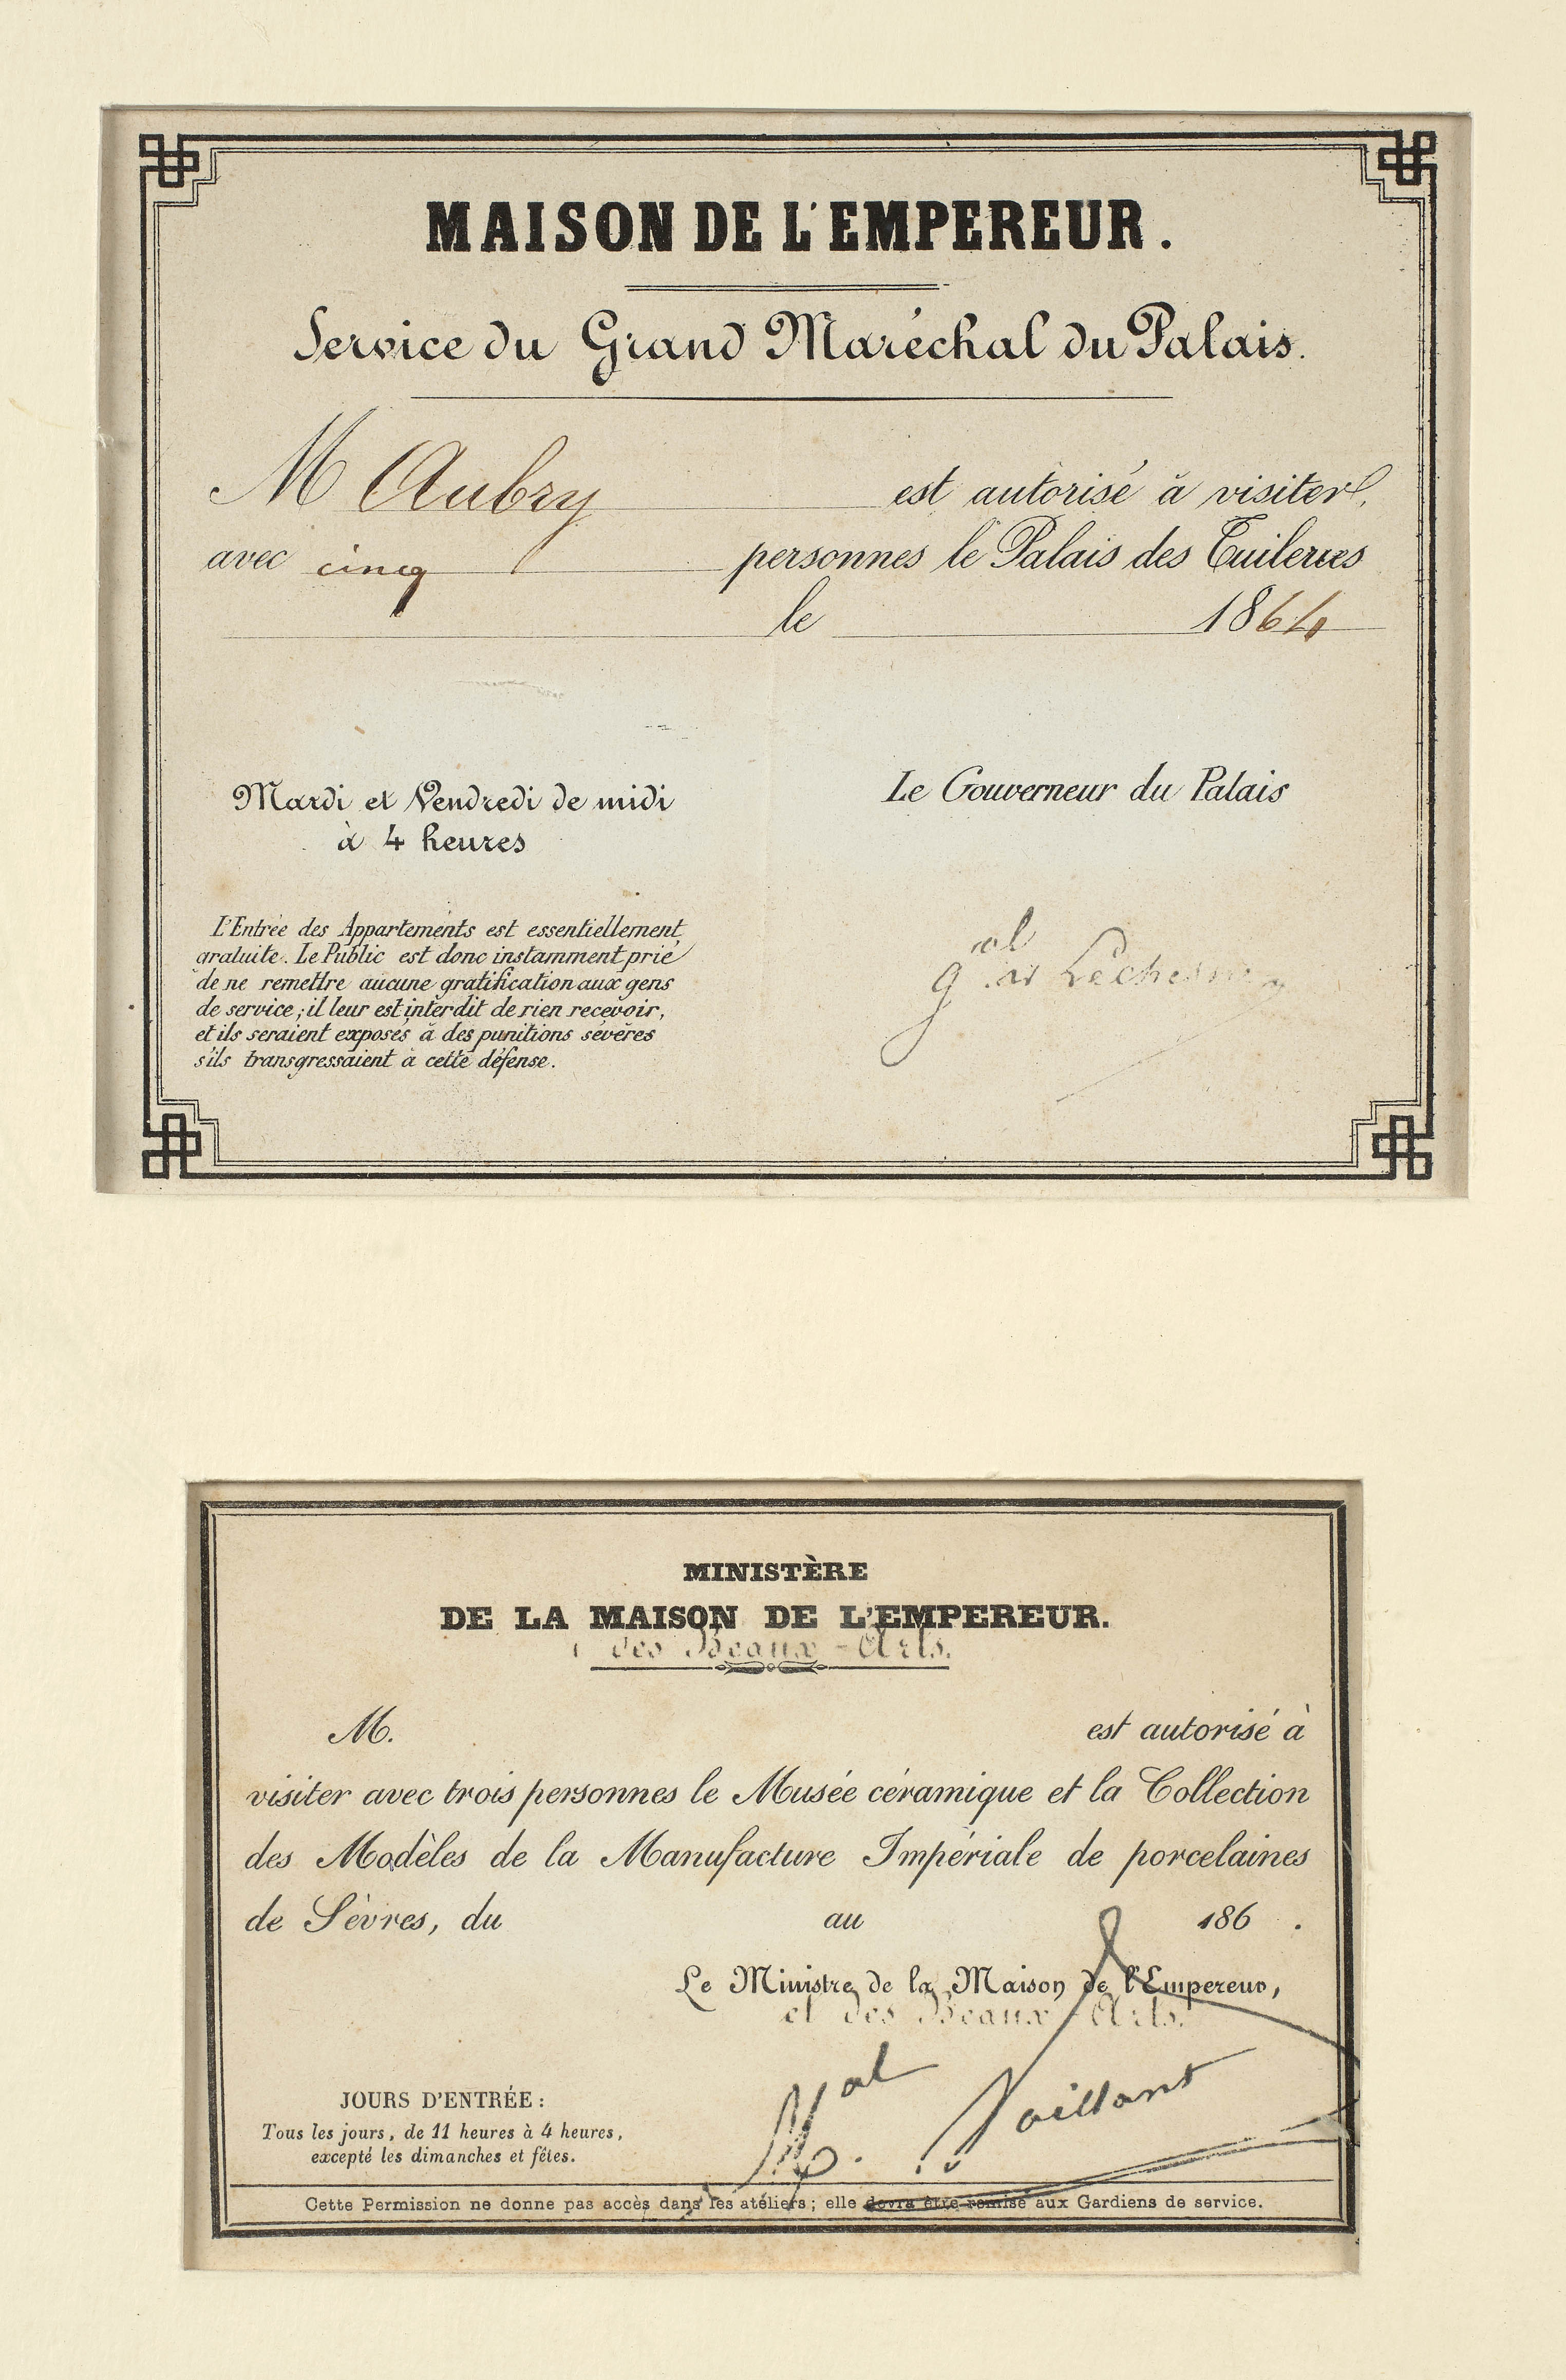 MAISON DE L'EMPEREUR.
Service du Grand Maréchal du Palais.
M Aubry est autorisé à visiter,
avec cinq personnes le Palais des Tuileries
le 1864
Mardi et Vendredi de midi
à 4 heures
Le Gouverneur du Palais
L'Entrée des Appartements est essentiellement
gratuite. Le Public est donc instamment prié
de ne remettre aucune gratification aux gens
de service; il leur est interdit de rien recevoir,
et ils seraient exposés à des punitions sévères
s'ils transgressaient à cette défense.
gal
MINISTÈRE
DE LA MAISON DE L'EMPEREUR.
des Beaux-Arts.
M. est autorisé à
visiter avec trois personnes le Musée céramique et la Collection
des Modèles de la Manufacture Impériale de porcelaines
de Sèvres, du au 186 .
Le Ministre de la Maison de l'Empereur,
et des Beaux-Arts.
Mal Vaillant
JOURS D'ENTRÉE:
Tous les jours, de 11 heures à 4 heures,
excepté les dimanches et fêtes.
Cette Permission ne donne pas accès dans les atéliers; elle devra être remise aux Gardiens de service.